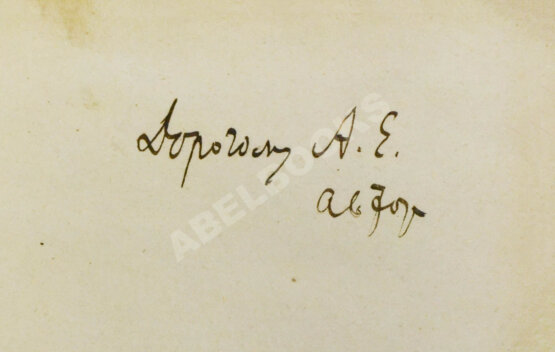 Дорогому А. Е.
автор
ABELBOOKS